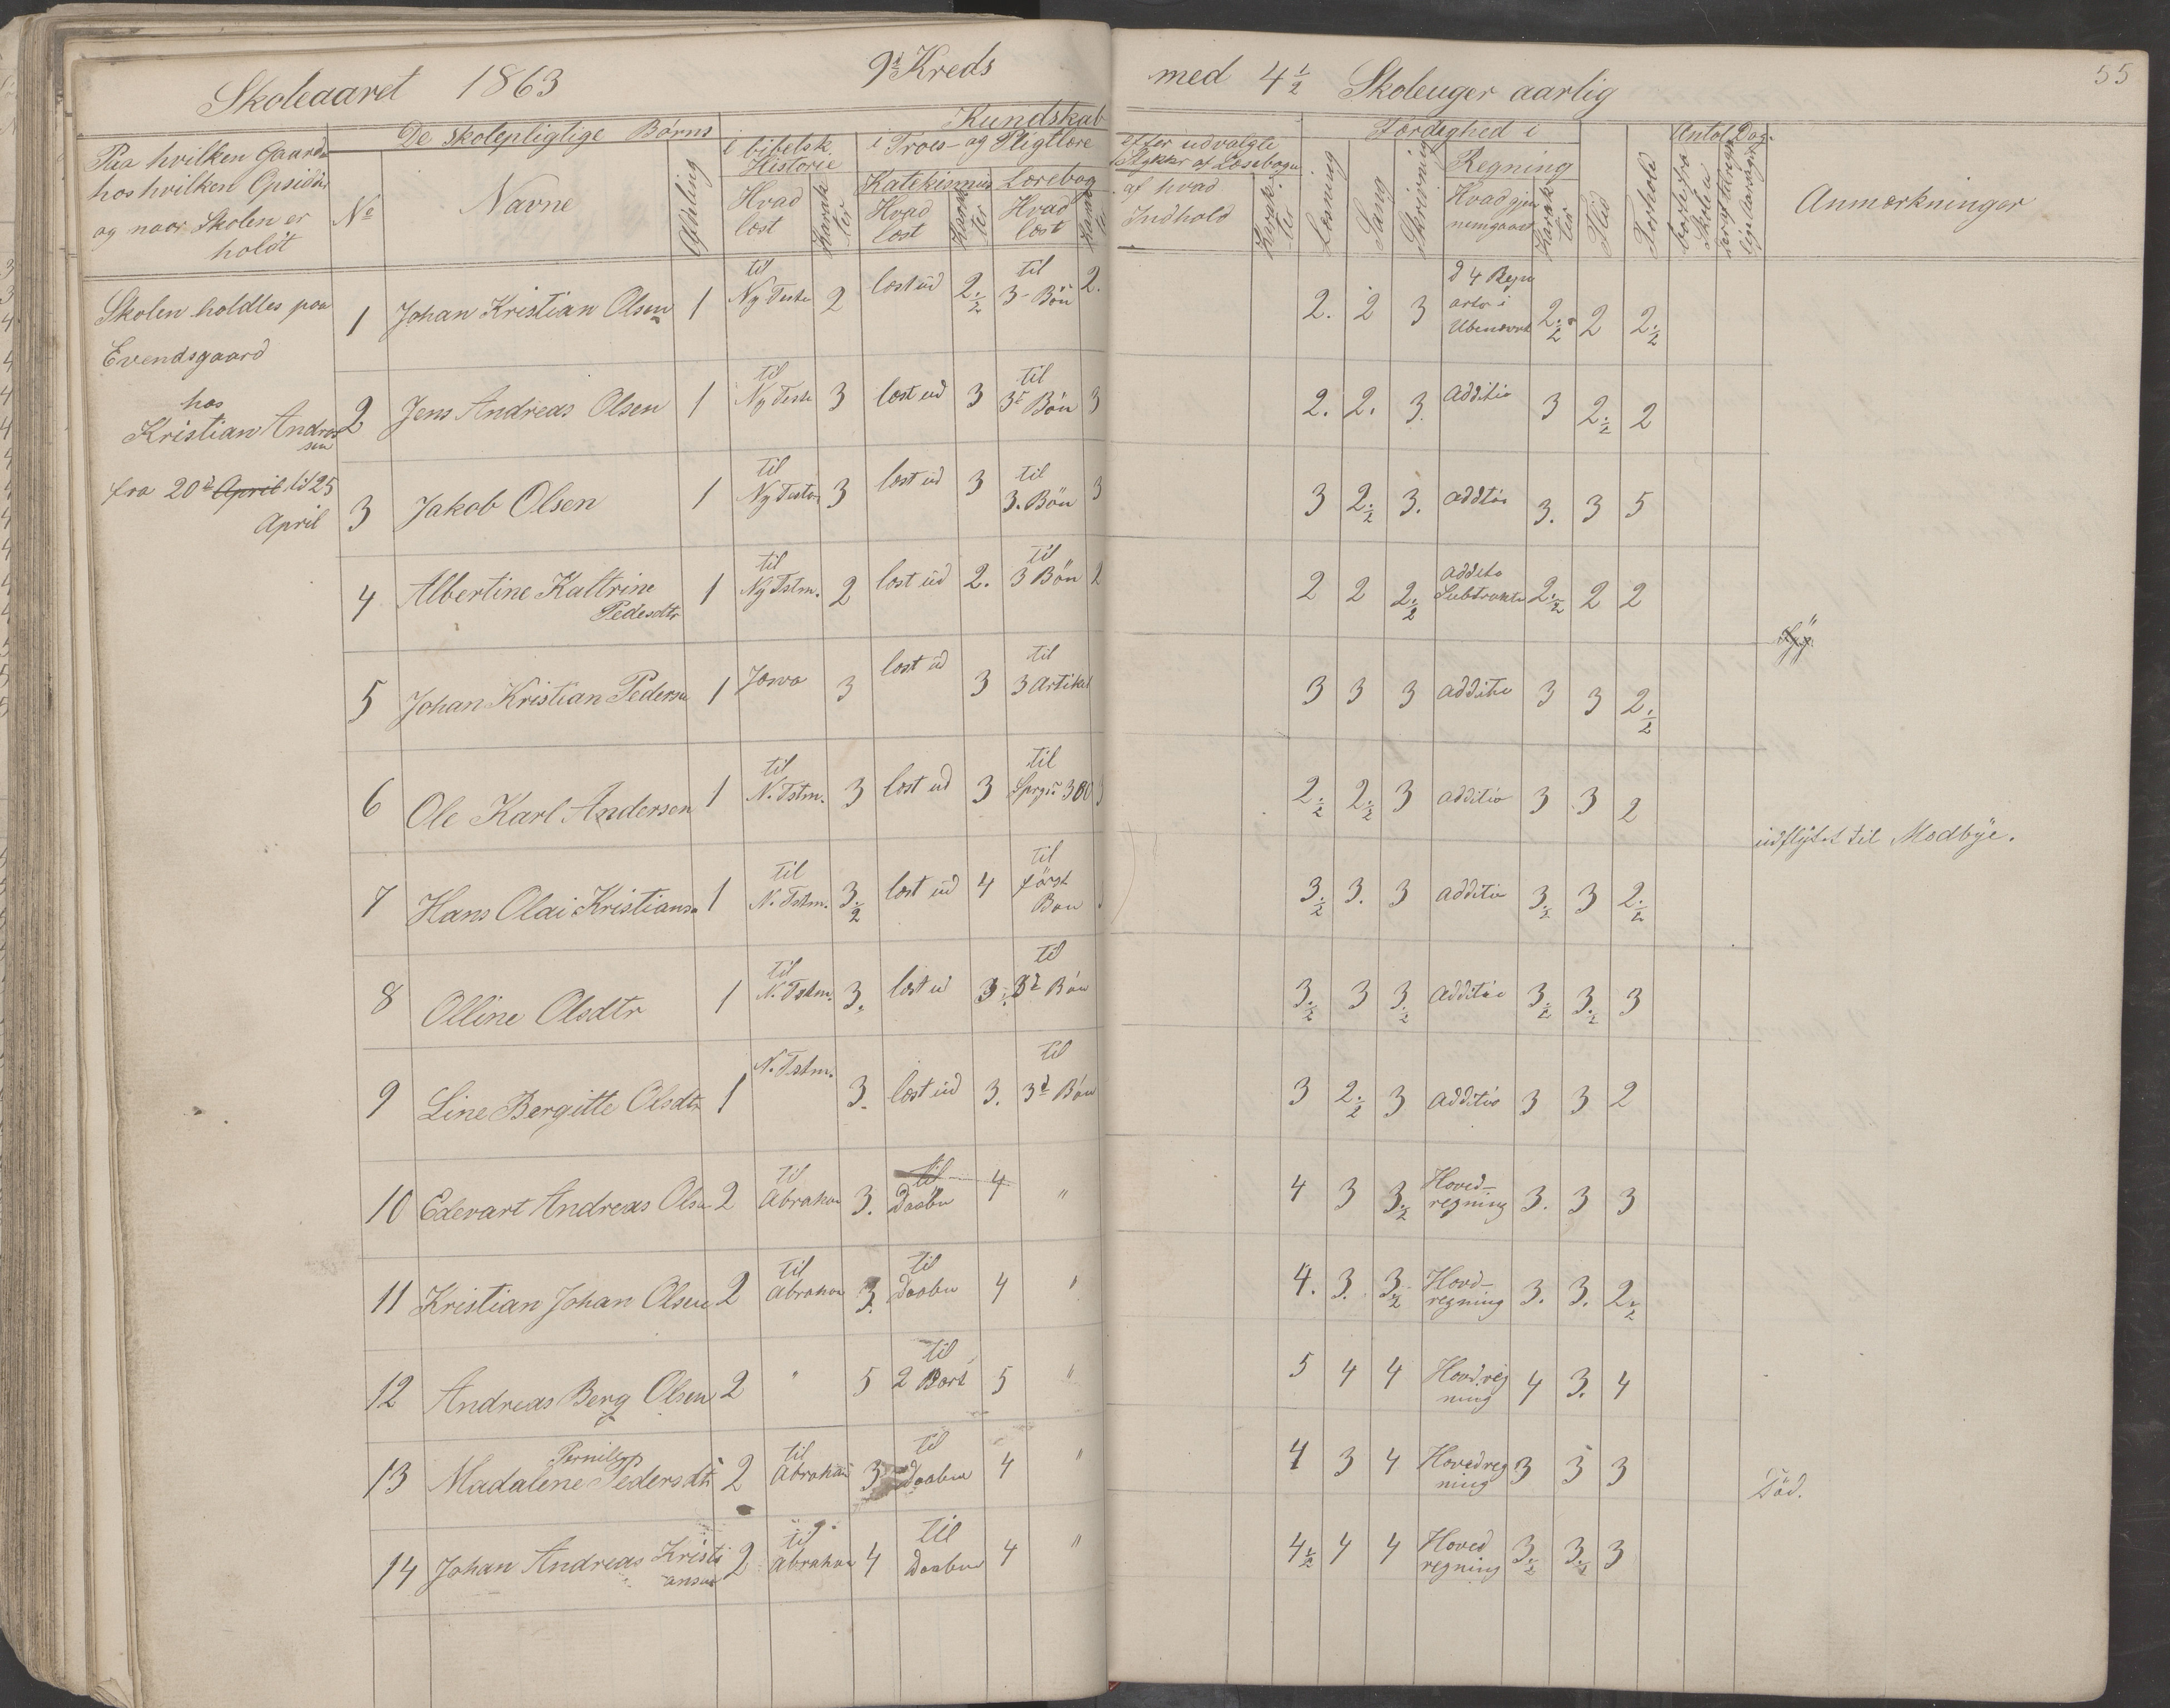 Skoleaaret 1863 9de Kreds med 4 1/2 Skoleuger aarlig
55
Paa hvilken Gaard
hos hvilken Opsidder
og naar Skolen er
holdt
De skolepligtige Børns
No
Navne
Afdeling
Kundskab
i bibelsk
Historie
Hvad
læst
Karakter
i Troes- og Pligtlære
Katekismus
Hvad
læst
Karakter
Lærebog
Hvad
læst
efter udvalgte
Stykker af Læsebogen
af hvad
Indhold
Karakter
Færdighed i
Læsning
Sang
Skrivning
Regning
Hvad gjennemgaaet
Karakter
Flid
Forhold
Antal Dage
borte fra
Skolen
Anmærkninger
Skolen holdtes paa
Evendsgaard
hos
Kristian Andreassen
fra 20de April til 25
April
1 Johan Kristian Olsen 1 til Ny Testa 2 læst ud 2 1/2 til 3 Bön 2. 2. 2 3 d 4 Regnarter i Ubenævnt 2 1/2 2 2 1/2
2 Jens Andreas Olsen 1 til Ny Testa 3 læst ud 3 til 3de Bön 3 2. 2. 3. additio 3 2 1/2 2
3 Jakob Olsen 1 til Ny Testa 3 læst ud 3 til 3. Bön 3 3 2 1/2 3. addtio 3. 3 5
4 Albertine Kattrine Pedesdtr 1 til Ny Tstm. 2 læst ud 2. til 3 Bön 2 2 2 2 1/2 additio Subtrakti 2 1/2 2 2
5 Johan Kristian Pedersen 1 Jowa 3 læst ud 3 til 3 Artikel 3 3 3 additio 3 3 2 1/2
6 Ole Karl Andersen 1 til N. Tstm. 3 læst ud 3 til Sprgs. 380 2 1/2 2 1/2 3 additio 3 3 2
udflÿtet til Modbÿe.
7 Hans Olai Kristians. 1 til N. Tstm. 3 1/2 læst ud 4 til först Bön 3 1/2 3. 3 additio 3 1/2 3 2 1/2
8 Olline Olsdtr 1 til N. Tstm. 3. læst ud 3 til 3d Bön 3 1/2 3 3 1/2 additio 3 1/2 3 1/2 3
9 Line Bergitte Olsdtr 1 N. Tstm. 3. læst ud 3. til 3d Bön 3 2 1/2 3 additio 3 3 2
10 Edevart Andreas Olsen 2 til Abraham 3. til Daaben 4 " 4 3 3 1/2 Hoved-regning 3. 3 3
11 Kristian Johan Olsen 2 til Abraham 3. til Daaben 4 " 4. 3. 3 1/2 Hovd-regning 3. 3. 2 1/2
12 Andreas Berg Olsen 2 " 5 til 2 Part 5 " 5 4 4 Hovdregning 4 3. 4
13 Madalene Pernille Pedersdtr 2 til Abraham 3 til Daaben 4 " 4 3 4 Hovedregning 3 3 3
Död.
14 Johan Andreas Kristiansen 2 til Abraham 4 til Daaben 4 " 4 1/2 4 4 Hovedregning 3 1/2 3 1/2 3